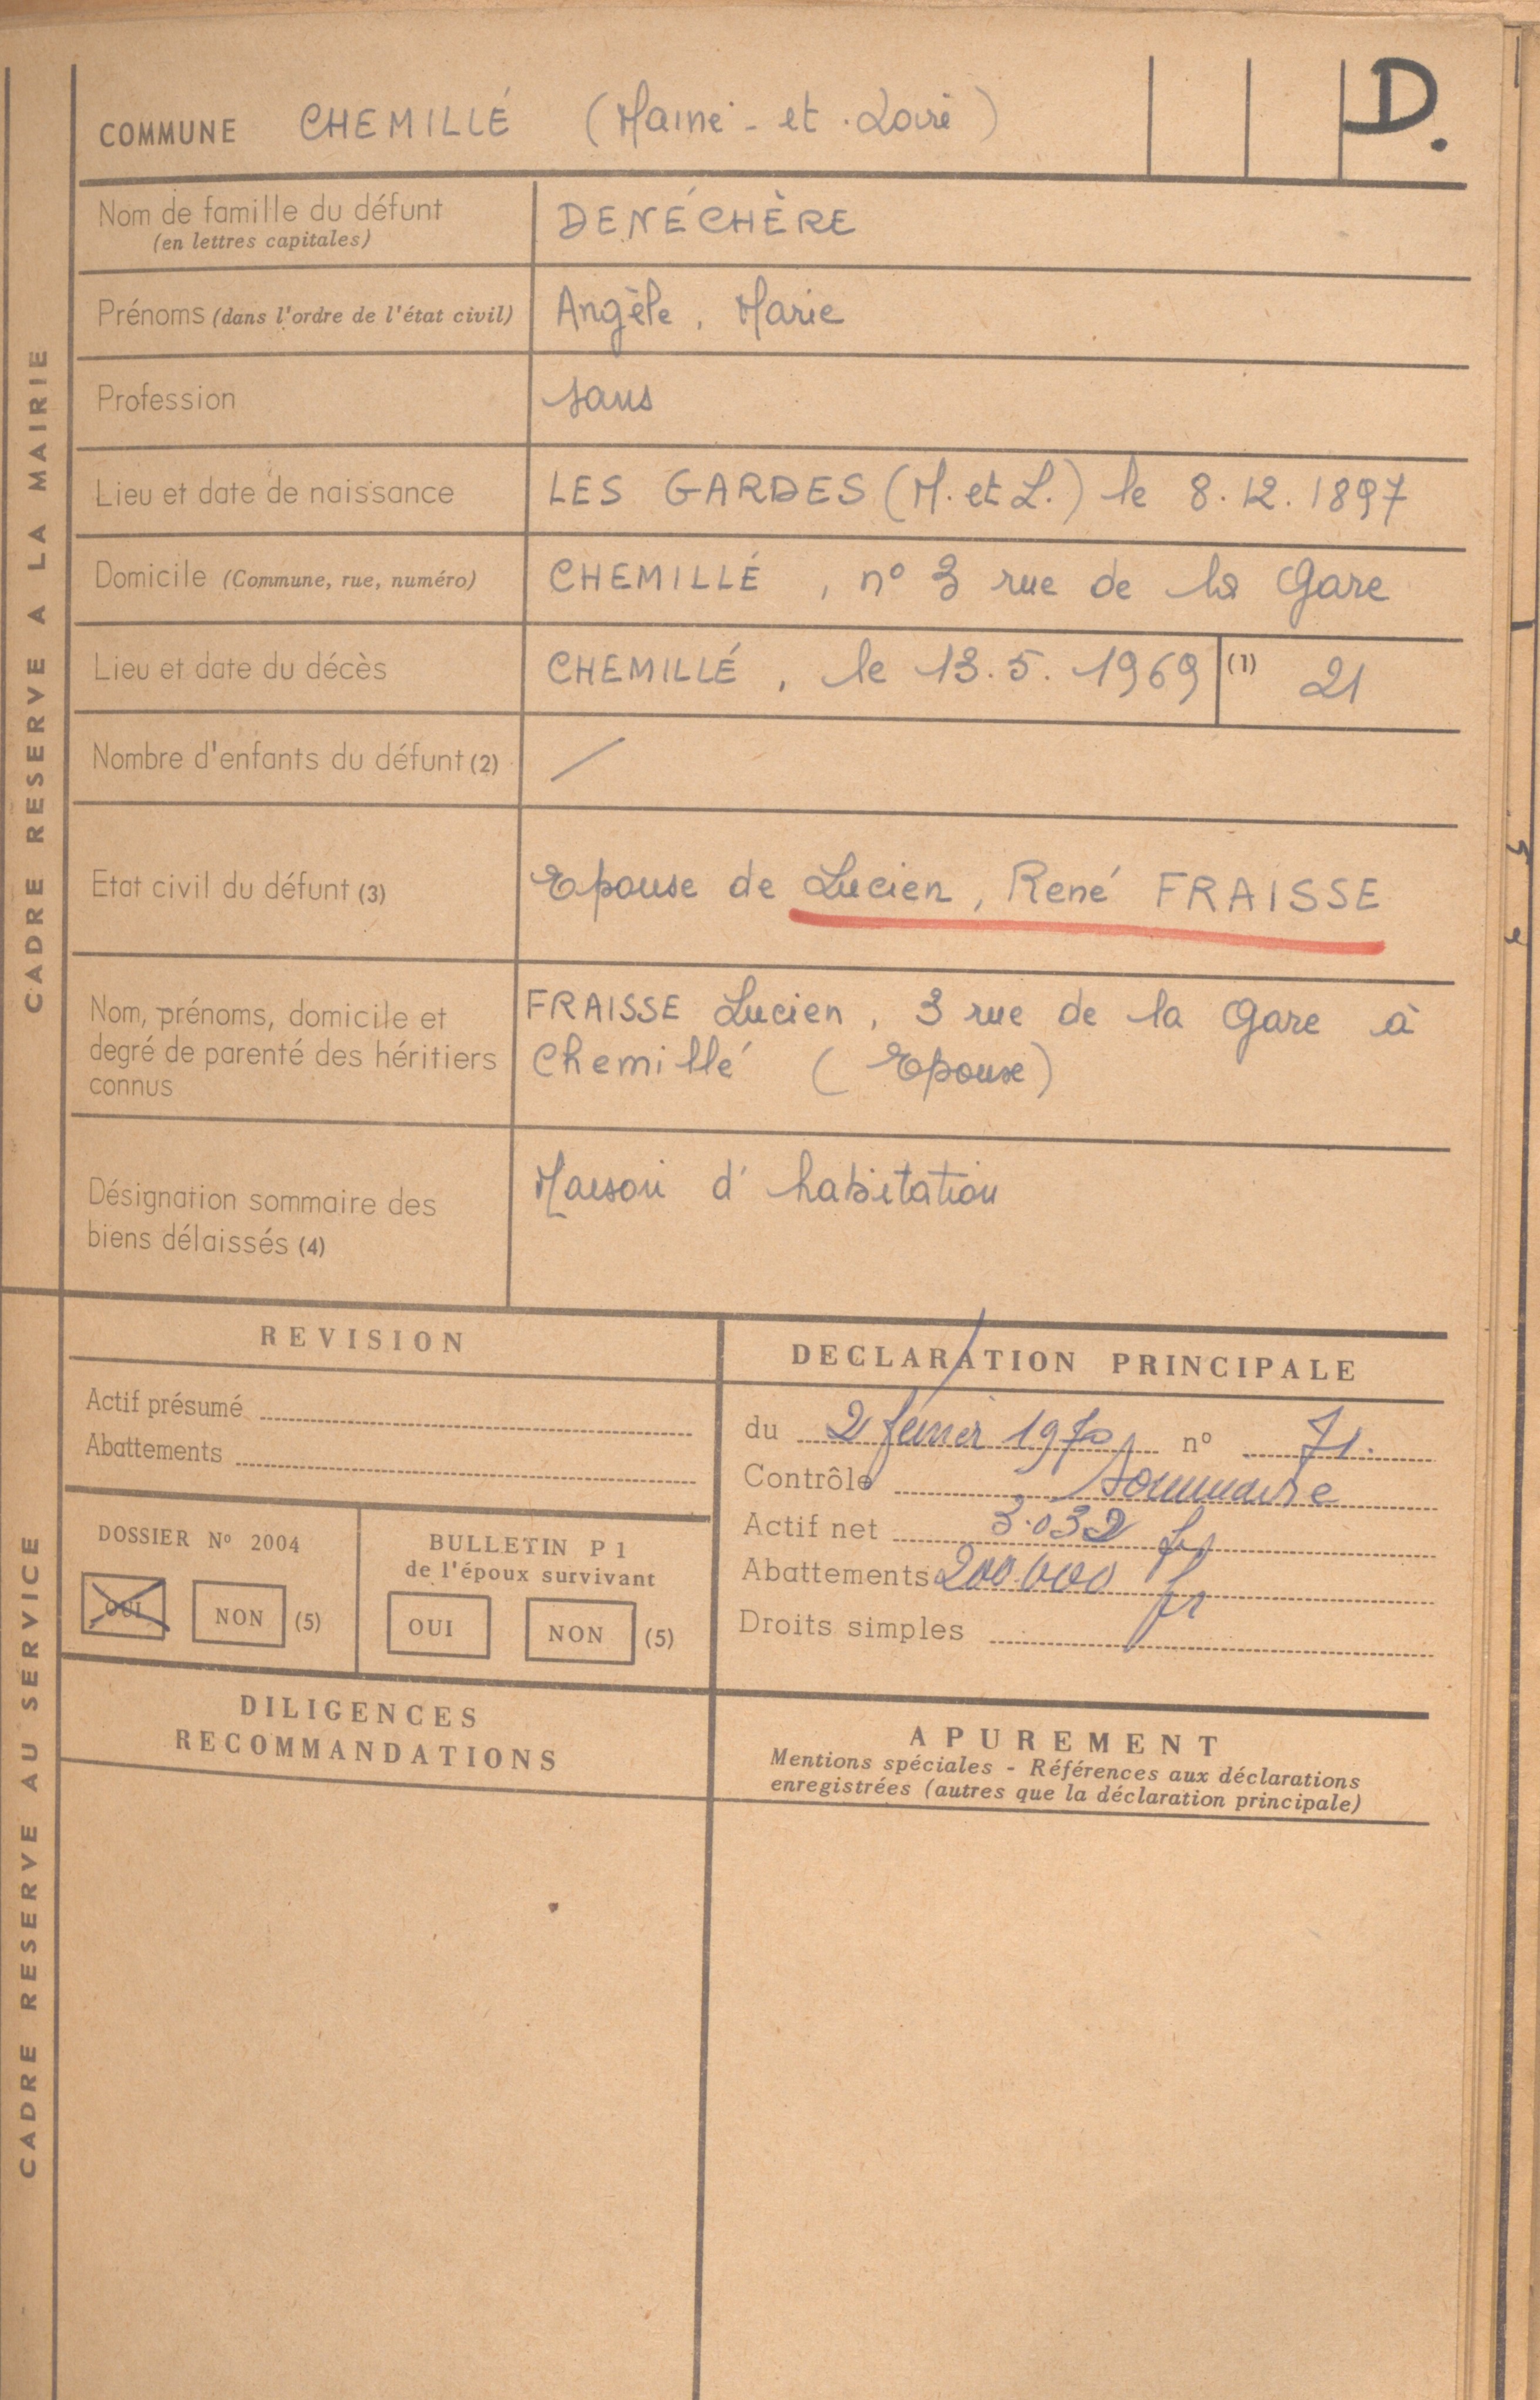 D.
COMMUNE CHEMILLÉ (Maine-et-Loire)
Nom de famille du défunt
(en lettres capitales)
DENÉCHÈRE
Prénoms (dans l'ordre de l'état civil) Angèle, Marie
Profession sans
Lieu et date de naissance LES GARDES (M. et L.) le 8.12.1897
Domicile (Commune, rue, numéro) CHEMILLÉ, n° 3 rue de la Gare
Lieu et date du décès CHEMILLÉ, le 13.5.1969 (1) 21
Nombre d'enfants du défunt (2) /
Etat civil du défunt (3) Epouse de Lucien, René FRAISSE
Nom, prénoms, domicile et
degré de parenté des héritiers
connus
FRAISSE Lucien, 3 rue de la Gare à
Chemillé (Epouse)
Désignation sommaire des
biens délaissés (4)
Maison d'habitation
CADRE RESERVE A LA MAIRIE
REVISION
Actif présumé
Abattements
DOSSIER N° 2004
OUI NON (5)
BULLETIN P 1
de l'époux survivant
OUI NON (5)
DECLARATION PRINCIPALE
du 2 février 1970 n° 71.
Contrôle Sommaire
Actif net 3.032 fr
Abattements 200.000 fr
Droits simples
DILIGENCES
RECOMMANDATIONS
APUREMENT
Mentions spéciales - Références aux déclarations
enregistrées (autres que la déclaration principale)
CADRE RESERVE AU SERVICE